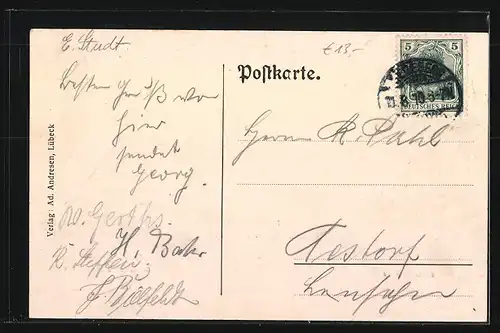 E. Studt
€13,-
Besten Gruß von
hier
sendet
Georg.
W. Gerths.
H. Bahr
K. Steffen
Verlag: Ad. Andresen, Lübeck
Postkarte.
5 5
DEUTSCHES REICH
Herrn K. Pahl
Testorf
Lensahn